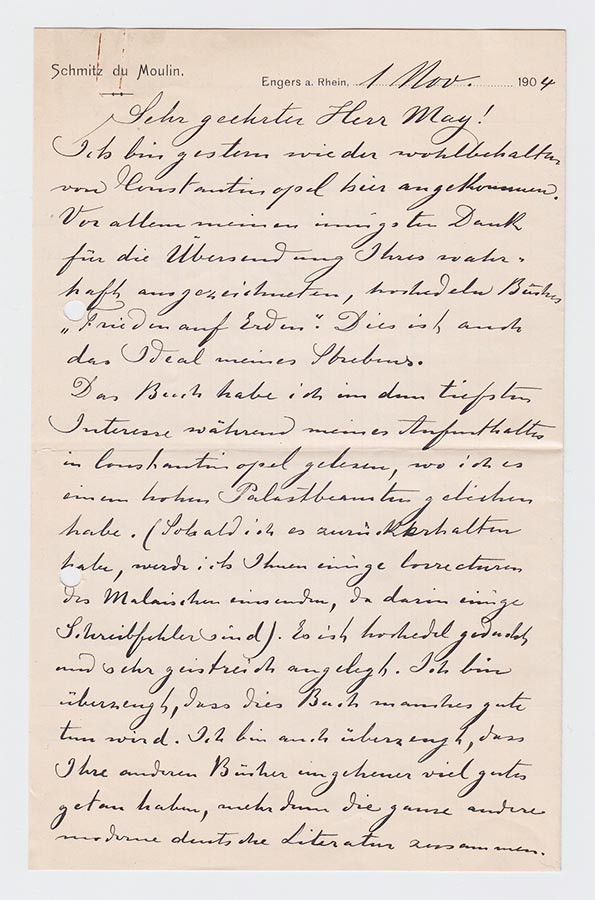 Schmitz du Moulin.
Engers a. Rhein, 1 Nov. 1904
Sehr geehrter Herr May!
Ich bin gestern wieder wohlbehalten
von Constantinopel hier angekommen.
Vor allem meinen innigsten Dank
für die Übersendung Ihres wahr-
haft ausgezeichneten, hochedeln Buches
„Frieden auf Erden". Dies ist auch
das Ideal meines Strebens.
Das Buch habe ich im dem tiefsten
Interesse während meines Aufenthaltes
in Constantinopel gelesen, wo ich es
einem hohen Palastbeamten geliehen
habe. (Sobald ich es zurückerhalten
habe, werde ich Ihnen einige Correcturen
des Malaischen einsenden, da darin einige
Schreibfehler sind). Es ist hochedel gedacht
und sehr geistreich angelegt. Ich bin
überzeugt, dass dies Buch manches gute
tun wird. Ich bin auch überzeugt, dass
Ihre anderen Bücher ungeheuer viel gutes
getan haben, mehr denn die ganze andere
moderne deutsche Literatur zusammen.